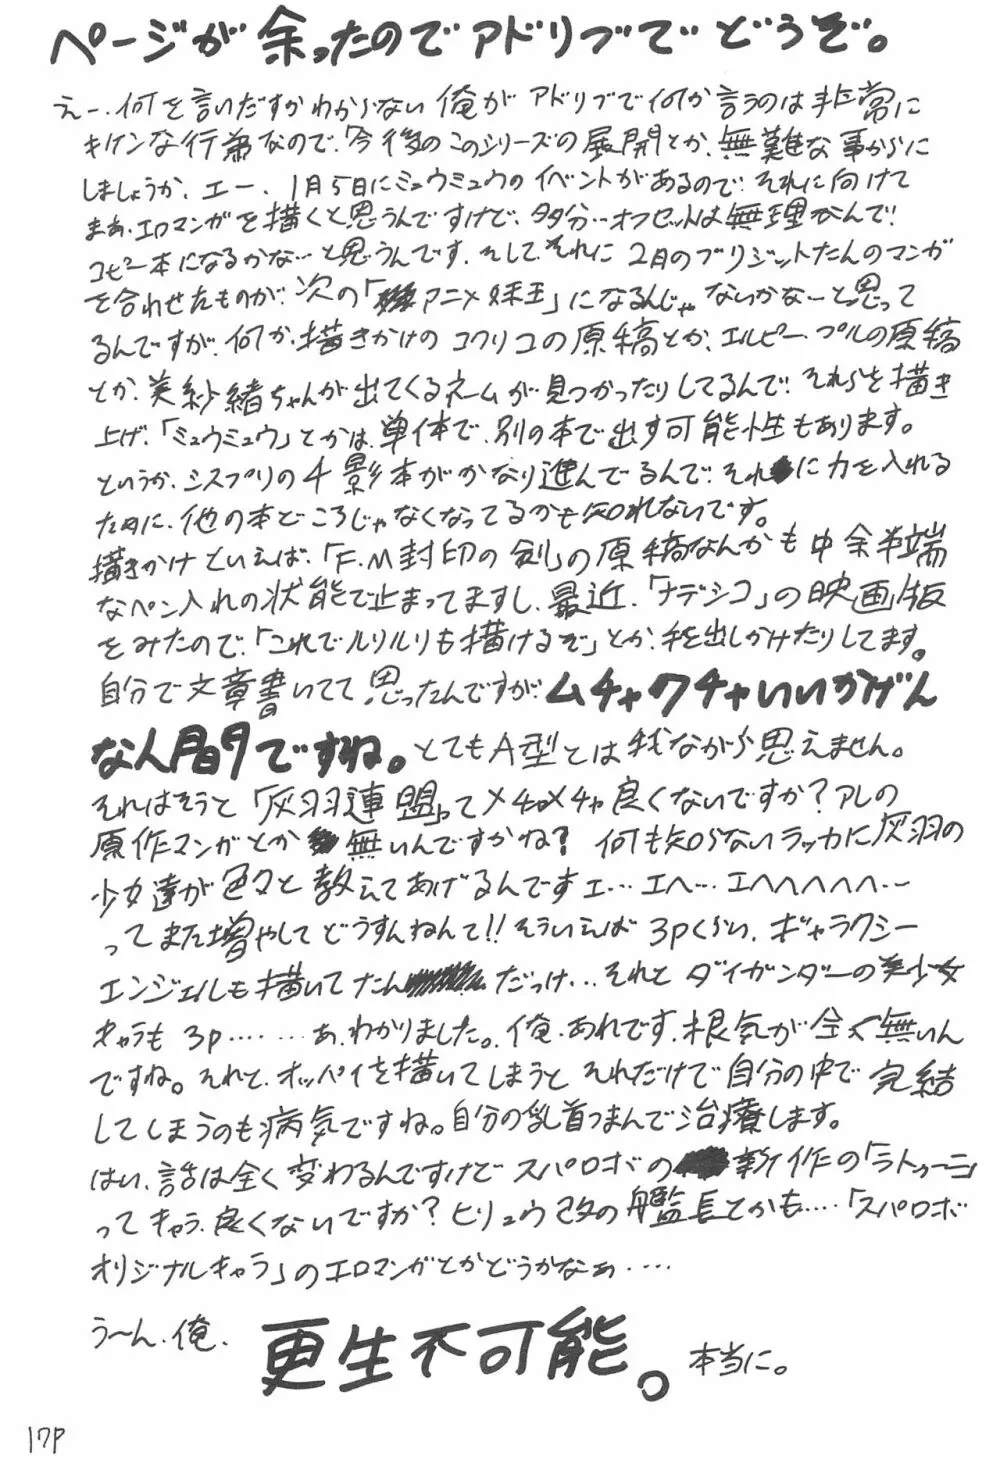 ページが余ったのでアドリブでどうぞ。
えー、何を言いだすかわからない俺がアドリブで何か言うのは非常に
キケンな行為なので、今後のこのシリーズの展開とか、無難な事からに
しましょうか、エー、1月5日にミュウミュウのイベントがあるので、それに向けて
まあ、エロマンガを描くと思うんですけど、多分…オフセットは無理なんで!
コピー本になるかな…と思うんです、そして、それに2月のブリジットたんのマンガ
を合わせたものが、次の「アニメ妹王」になるんじゃないかなーと思って
るんですが、何か、描きかけのコクリコの原稿とか、エルピー・プルの原稿
とか、美紗緒ちゃんが出てくるネームが見つかったりしてるんで、それらを描き
上げ、「ミュウミュウ」とかは、単体で、別の本で出す可能性もあります。
というか、シスプリの千影本がかなり進んでるんで、それに力を入れる
ために、他の本どころじゃなくなってるかも知れないです。
描きかけといえば、「F.M封印の剣」の原稿なんかも中途半端
なペン入れの状態で止まってますし、最近、「ナデシコ」の映画版
をみたので、「これでルリルリも描けるぞ」とか、手を出しかけたりしてます。
自分で文章書いてて思ったんですが、ムチャクチャいいかげん
な人間ですね。とてもA型とは我ながら思えません。
それはそうと「灰羽連盟」ってメチャメチャ良くないですか?アレの
原作マンガとか無いんですかね?何も知らないラッカに灰羽の
少女達が色々と教えてあげるんですェ…エヘ…エヘヘヘヘヘ…
ってまた増やしてどうすんねんて!!そういえば3Pくらい、ギャラクシー
エンジェルも描いてたんだっけ…それとダイガンダーの美少女
キャラも3P……あ、わかりました。俺、あれです、根気が全く無いん
ですね。それと、オッパイを描いてしまうとそれだけで自分の中で完結
してしまうのも病気ですね。自分の乳首つまんで治療します。
はい、話は全く変わるんですけどスパロボの新作の「ラトゥーニ」
ってキャラ、良くないですか?ヒリュウ改の艦長とかも…、「スパロボ
オリジナルキャラ」のエロマンガとかどうかなぁ…
う〜ん、俺、更生不可能。本当に。
17P